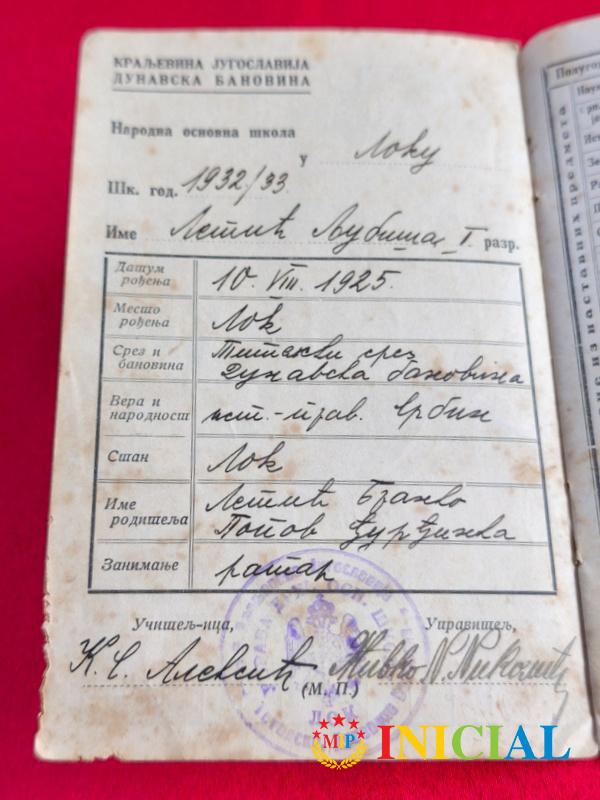 КРАЉЕВИНА ЈУГОСЛАВИЈА
ДУНАВСКА БАНОВИНА
Народна основна школа
у Локу
Шк. год. 1932/33.
Име Летић Љубиша I разр.
Датум рођења 10. VIII. 1925.
Место рођења Лок
Срез и бановина Тителски срез
Дунавска бановина
Вера и народност ист.-прав. Србин
Стан Лок
Име родитеља Летић Бранко
Попов Ђурђинка
Занимање ратар
Учитељ-ица, Управитељ,
К. С. Алексић Живко Н.
(М. П.)
ЛОК
MP INICIAL
Полугод